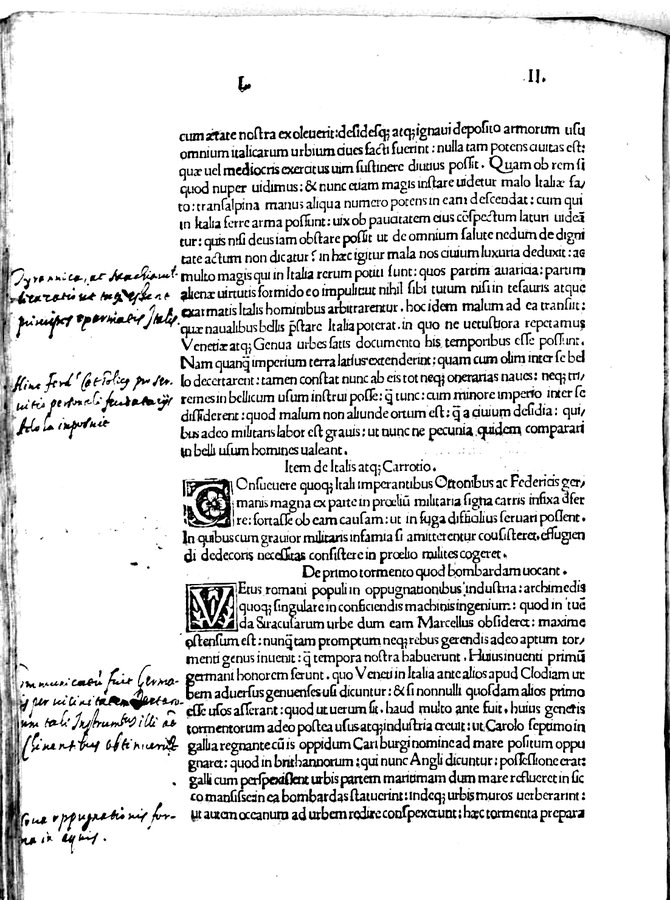 L.
II.
cum ætate nostra exoleuerit: desidesq; atq; ignaui deposito armorum usu
omnium italicarum urbium ciues facti fuerint: nulla tam potens ciuitas est:
quæ uel mediocris exercitus uim sustinere diutius possit. Quam ob rem si
quod nuper uidimus: & nunc etiam magis instare uidetur malo Italiæ fa/
to: transalpina manus aliqua numero potens in eam descendat: cum qui
in Italia ferre arma possunt: uix ob paucitatem eius cōspectum laturi uideā
tur: quis nisi deus iam obstare possit ut de omnium salute nedum de digni
tate actum non dicatur? in hæc igitur mala nos ciuium luxuria deduxit: ac
multo magis qui in Italia rerum potiti sunt: quos partim auaritia: partim
alienæ uirtutis formido eo impulit ut nihil sibi tutum nisi in tesauris atque
exarmatis Italis hominibus arbitrarentur. hoc idem malum ad ea transiit:
quæ naualibus bellis p̄stare Italia poterat. in quo ne uetustiora repetamus
Venetiæ atq; Genua urbes satis documento his temporibus esse possunt.
Nam quanq̄ imperium terra latius extenderint: quam cum olim inter se bel
lo decertarent: tamen constat nunc ab eis tot neq; onerarias naues: neq; tri/
remes in bellicum usum instrui posse: q̄ tunc: cum minore imperio inter se
dissiderent: quod malum non aliunde ortum est: q̄ a ciuium desidia: qui/
bus adeo militaris labor est grauis: ut nunc ne pecunia quidem comparari
in belli usum homines ualeant.
Item de Italis atq; Carrotio.
COnsueuere quoq; Itali imperantibus Ottonibus ac Federicis ger/
manis magna ex parte in prœlium militaria signa carris infixa dfer
re: fortasse ob eam causam: ut in fuga difficilius seruari possent.
In quibus cum grauior militaris infamia si amitterentur cōsisteret: effugien
di dedecoris necessitas consistere in prœlio milites cogeret.
De primo tormento quod bombardam uocant.
VEtus romani populi in oppugnationibus industria: archimedis
quoq; singulare in conficiendis machinis ingenium: quod in tuē
da Siracusarum urbe dum eam Marcellus obsideret: maxime
ostensum est: nunq̄ tam promptum neq; rebus gerendis adeo aptum tor/
menti genus inuenit: q̄ tempora nostra habuerunt. Huius inuenti primū
germani honorem ferunt. quo Veneti in Italia ante alios apud Clodiam ur
bem aduersus genuenses usi dicuntur: & si nonnulli quosdam alios primo
esse usos asserant: quod ut uerum sit. haud multo ante fuit. huius generis
tormentorum adeo postea usus atq; industria creuit: ut Carolo septimo in
gallia regnante cū is oppidum Cariburgi nomine ad mare positum oppu
gnaret: quod in brithannorum: qui nunc Angli dicuntur: possessione erat:
galli cum perspexissent urbis partem maritimam dum mare reflueret in sic
co mansisse in ea bombardas statuerint: indeq; urbis muros uerberarint:
ut autem oceanum ad urbem redire conspexerunt: hæc tormenta prepara
principes
Italis
Hinc Ferd. Catholicus
fuit Germa-
oppugnationis for-
ma in aquis.